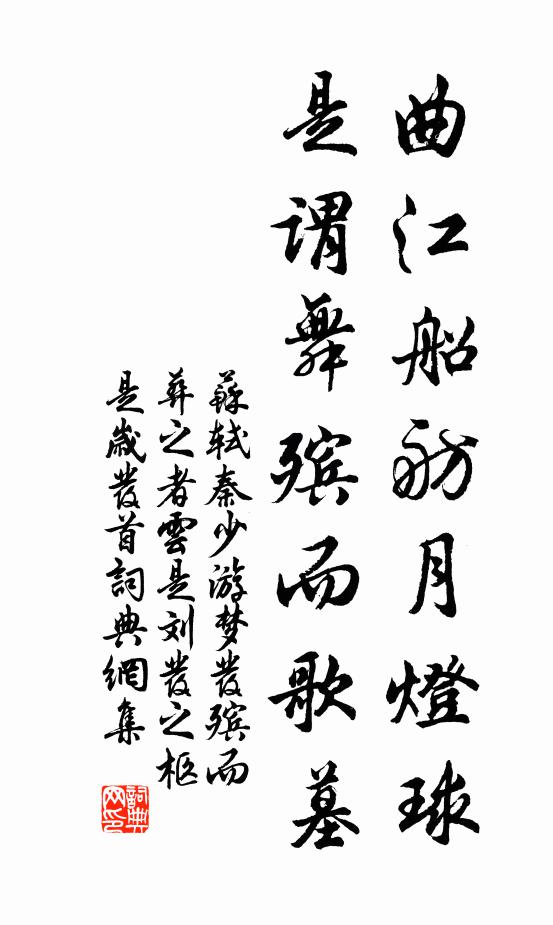 曲江船舫月燈球
是謂舞殡而歌墓
蘇軾秦少游梦發殡而
葬之者雲是刘發之柩
是歲發首詞典網集
詞典網印